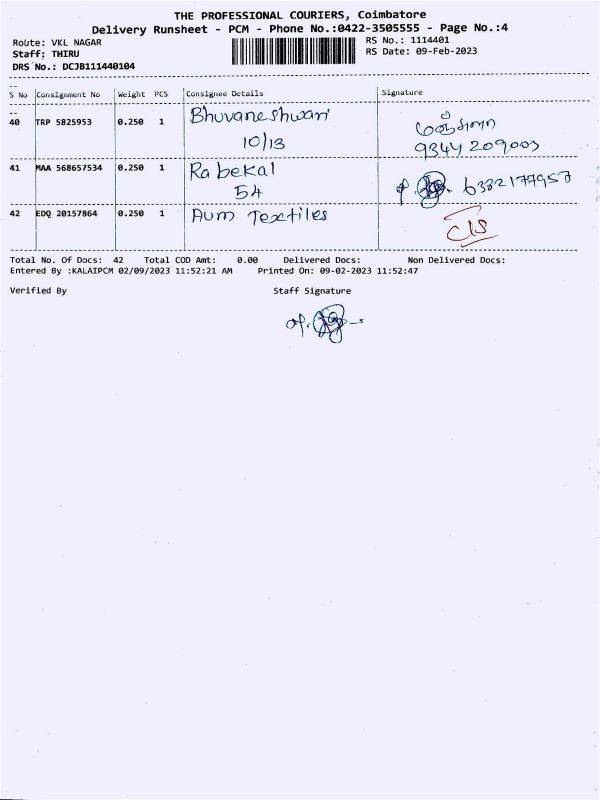 THE PROFESSIONAL COURIERS, Coimbatore
Delivery Runsheet - PCM - Phone No.:0422-3505555 - Page No.:4
Route: VKL NAGAR
Staff: THIRU
DRS No.: DCJB111440104
RS No.: 1114401
RS Date: 09-Feb-2023
S No Consignment No Weight PCS Consignee Details Signature
40 TRP 5825953 0.250 1 Bhuvaneshwari
10/13
9344209003
41 MAA 568657534 0.250 1 Rabekal
54
6382177957
42 EDQ 20157864 0.250 1 Aum Textiles
Total No. Of Docs: 42 Total COD Amt: 0.00 Delivered Docs: Non Delivered Docs:
Entered By :KALAIPCM 02/09/2023 11:52:21 AM Printed On: 09-02-2023 11:52:47
Verified By Staff Signature